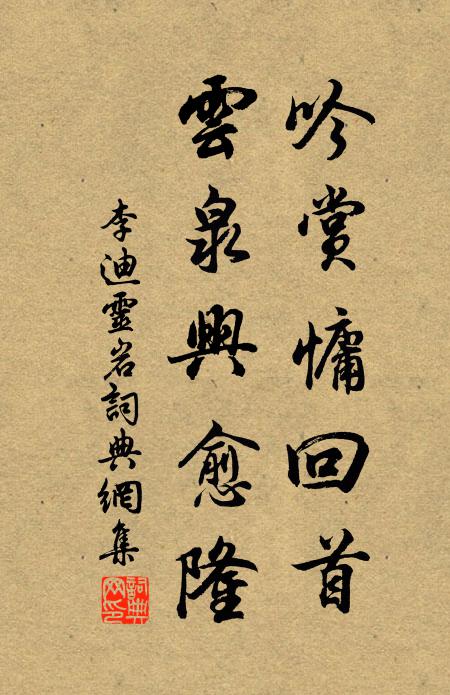 吟賞慵回首
雲泉興愈隆
李迪靈岩詞典網集
詞典网印